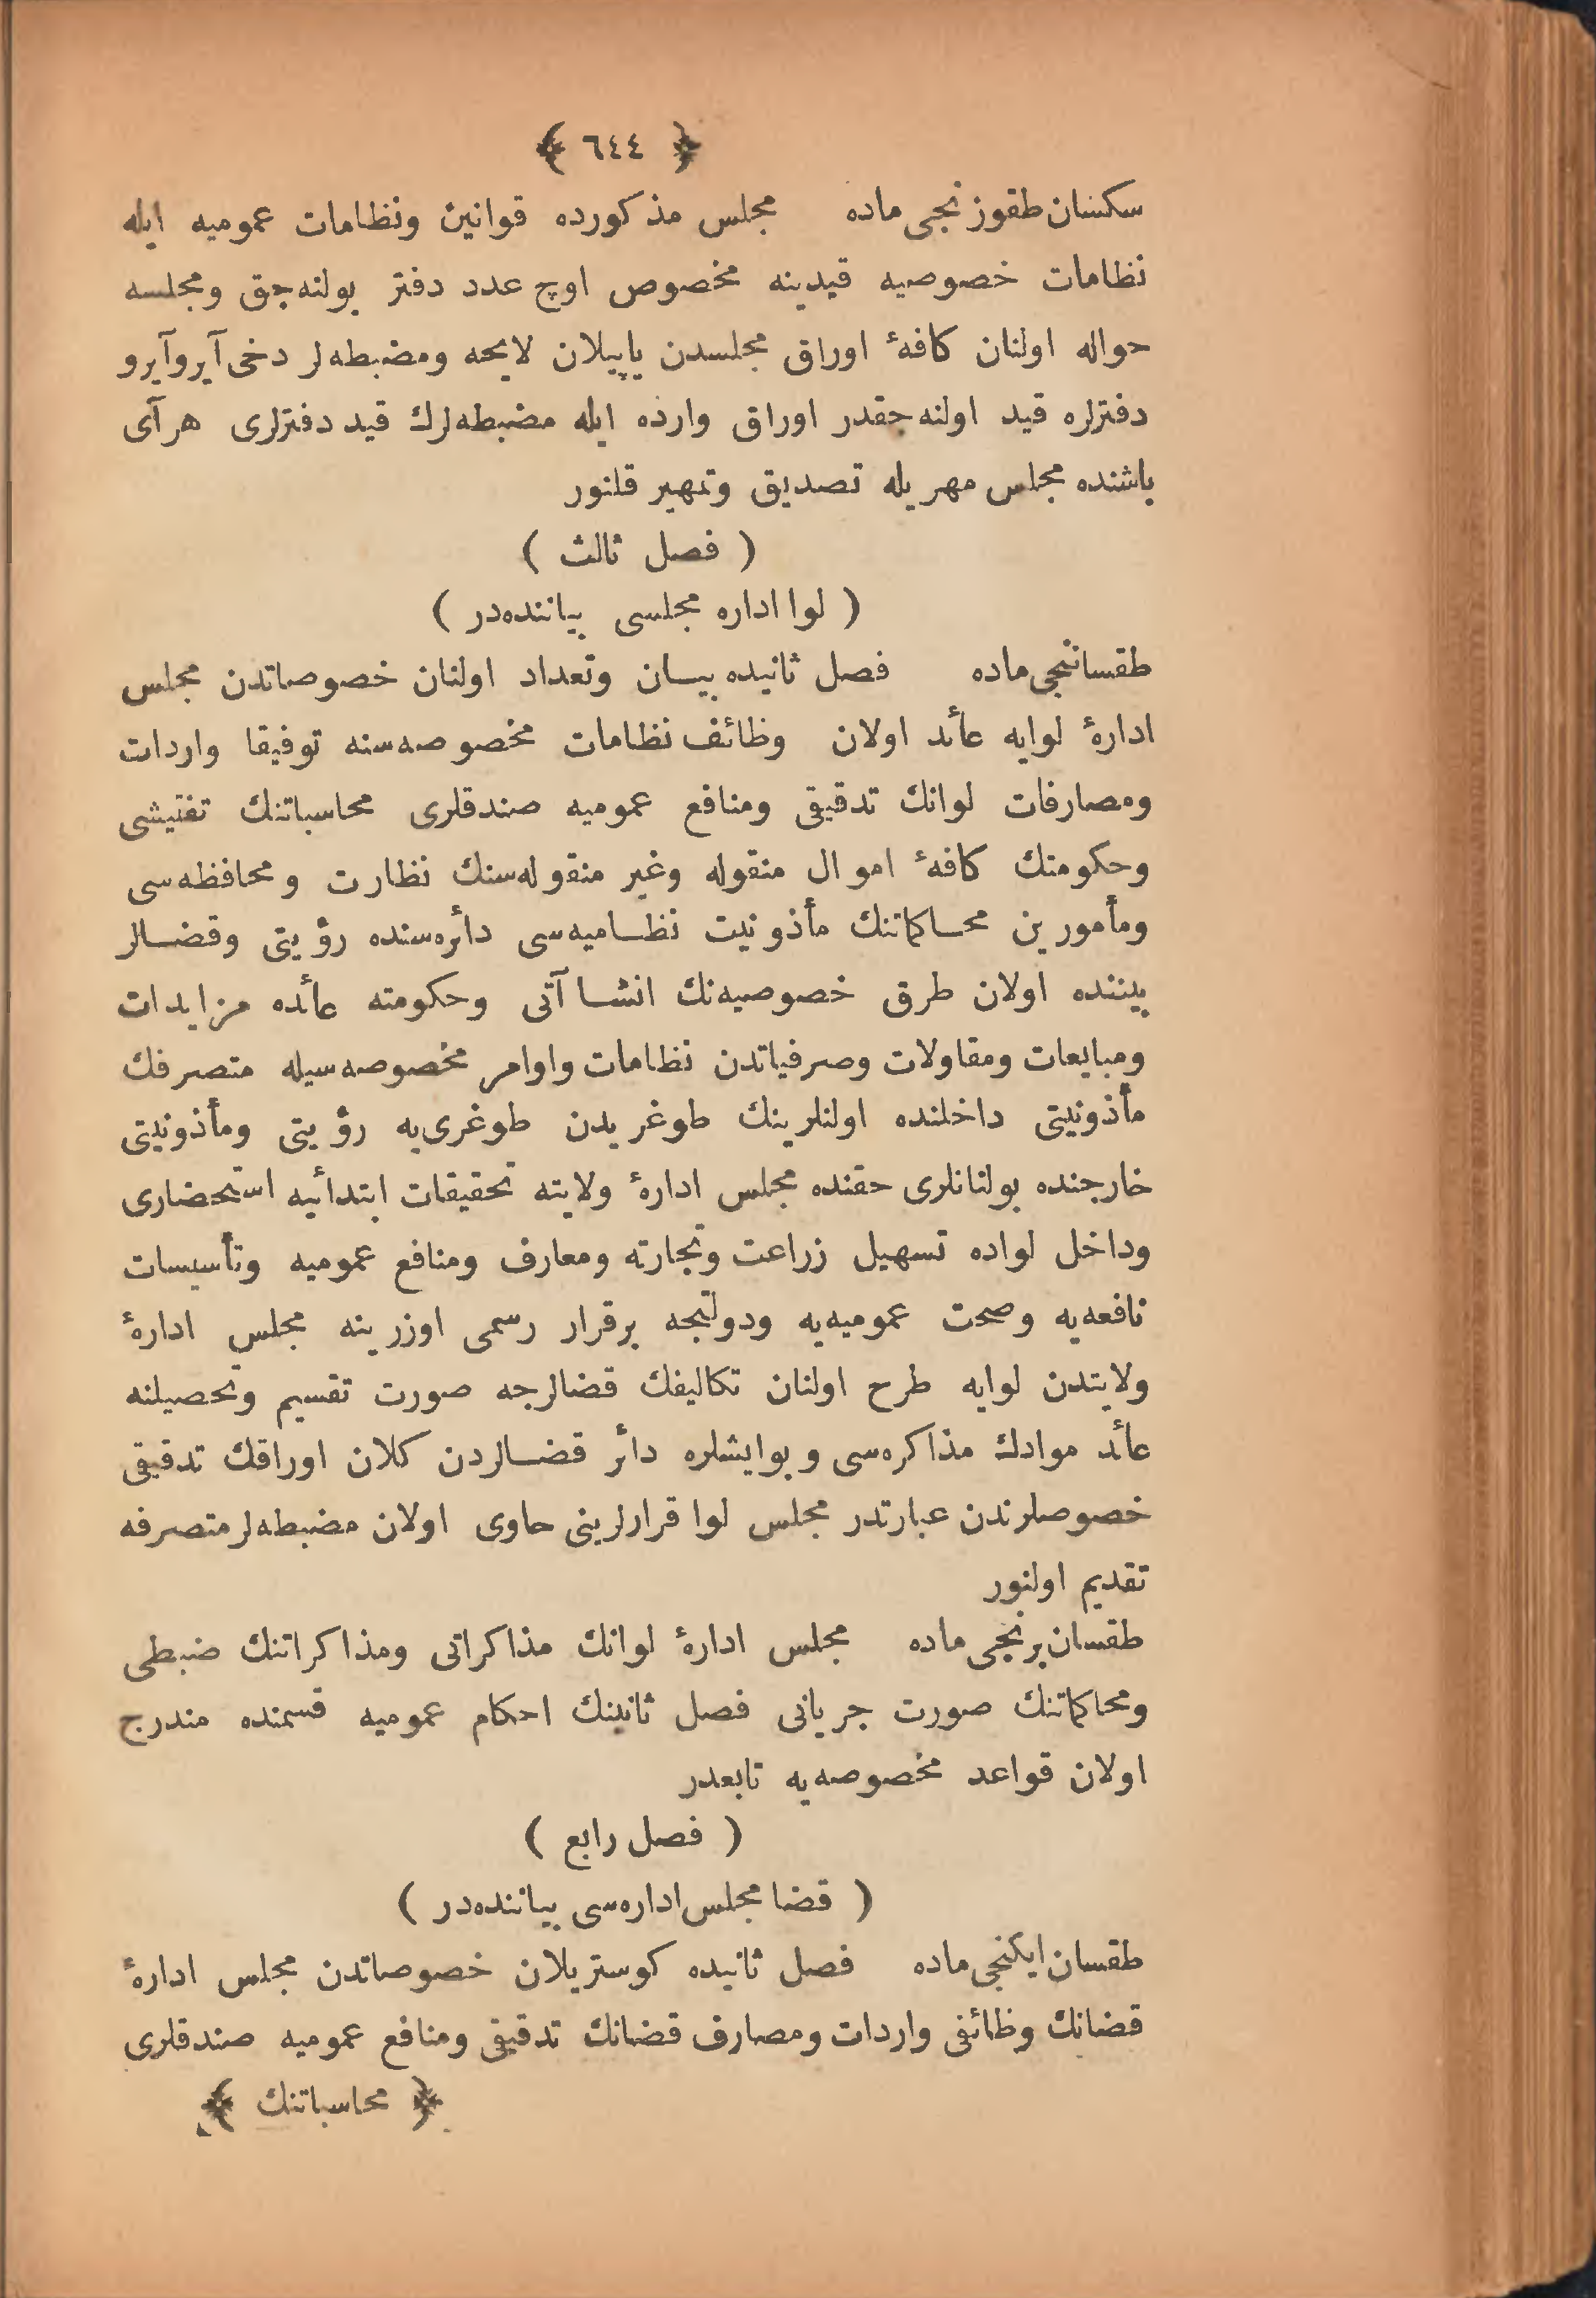 ﴿ ٦٤٤ ﴾
سكسان طقوزنجی ماده مجلس مذكورده قوانین ونظامات عمومیه ایله
نظامات خصوصیه قیدینه مخصوص اوچ عدد دفتر بولنه‌جق ومجلسه
حواله اولنان كافهٔ اوراق مجلسدن یاپیلان لایحه ومضبطه‌لر دخی آیروآیرو
دفترلره قید اولنه‌جقدر اوراق وارده ایله مضبطه‌لرك قید دفترلری هر آی
باشنده مجلس مهریله تصدیق وتمهیر قلنور
( فصل ثالث )
( لوا اداره مجلسی بیاننده‌در )
طقساننجی ماده فصل ثانیده بیـان وتعداد اولنان خصوصاتدن مجلس
ادارهٔ لوایه عائد اولان وظائف نظامات مخصوصه‌سنه توفیقا واردات
ومصارفات لوانك تدقیقی ومنافع عمومیه صندقلری محاسباتنك تفتیشی
وحكومتك كافهٔ اموال منقوله وغیر منقوله‌سنك نظارت ومحافظه‌سی
ومأمورین محـاكماتنك مأذونیت نظـامیه‌سی دائره‌سنده رؤیتی وقضـالر
بیننده اولان طرق خصوصیه‌نك انشـاآتی وحكومته عائده مزایدات
ومبایعات ومقاولات وصرفیاتدن نظامات واوامر مخصوصه‌سیله متصرفك
مأذونیتی داخلنده اولنلرینك طوغریدن طوغری‌یه رؤیتی ومأذونیتی
خارجنده بولنانلری حقنده مجلس ادارهٔ ولایته تحقیقات ابتدائیه استحضاری
وداخل لواده تسهیل زراعت وتجارته ومعارف ومنافع عمومیه وتأسیسات
نافعه‌یه وصحت عمومیه‌یه ودولتجه برقرار رسمی اوزرینه مجلس ادارهٔ
ولایتدن لوایه طرح اولنان تكالیفك قضالرجه صورت تقسیم وتحصیلنه
عائد موادك مذاكره‌سی وبوایشلره دائر قضـالردن كلان اوراقك تدقیقی
خصوصلرندن عبارتدر مجلس لوا قرارلرینی حاوی اولان مضبطه‌لر متصرفه
تقدیم اولنور
طقسان برنجی ماده مجلس ادارهٔ لوانك مذاكراتی ومذاكراتنك ضبطی
ومحاكماتنك صورت جریانی فصل ثانینك احكام عمومیه قسمنده مندرج
اولان قواعد مخصوصه‌یه تابعدر
( فصل رابع )
( قضا مجلس اداره‌سی بیاننده‌در )
طقسان ایكنجی ماده فصل ثانیده كوستریلان خصوصاتدن مجلس ادارهٔ
قضانك وظائفی واردات ومصارف قضانك تدقیقی ومنافع عمومیه صندقلری
﴿ محاسباتنك ﴾